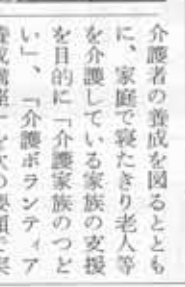 介護者の養成を図るととも
に、家庭で寝たきり老人等
を介護している家族の支援
を目的に「介護家族のつど
い」、「介護ボランティア
養成講座」を次の要領で実